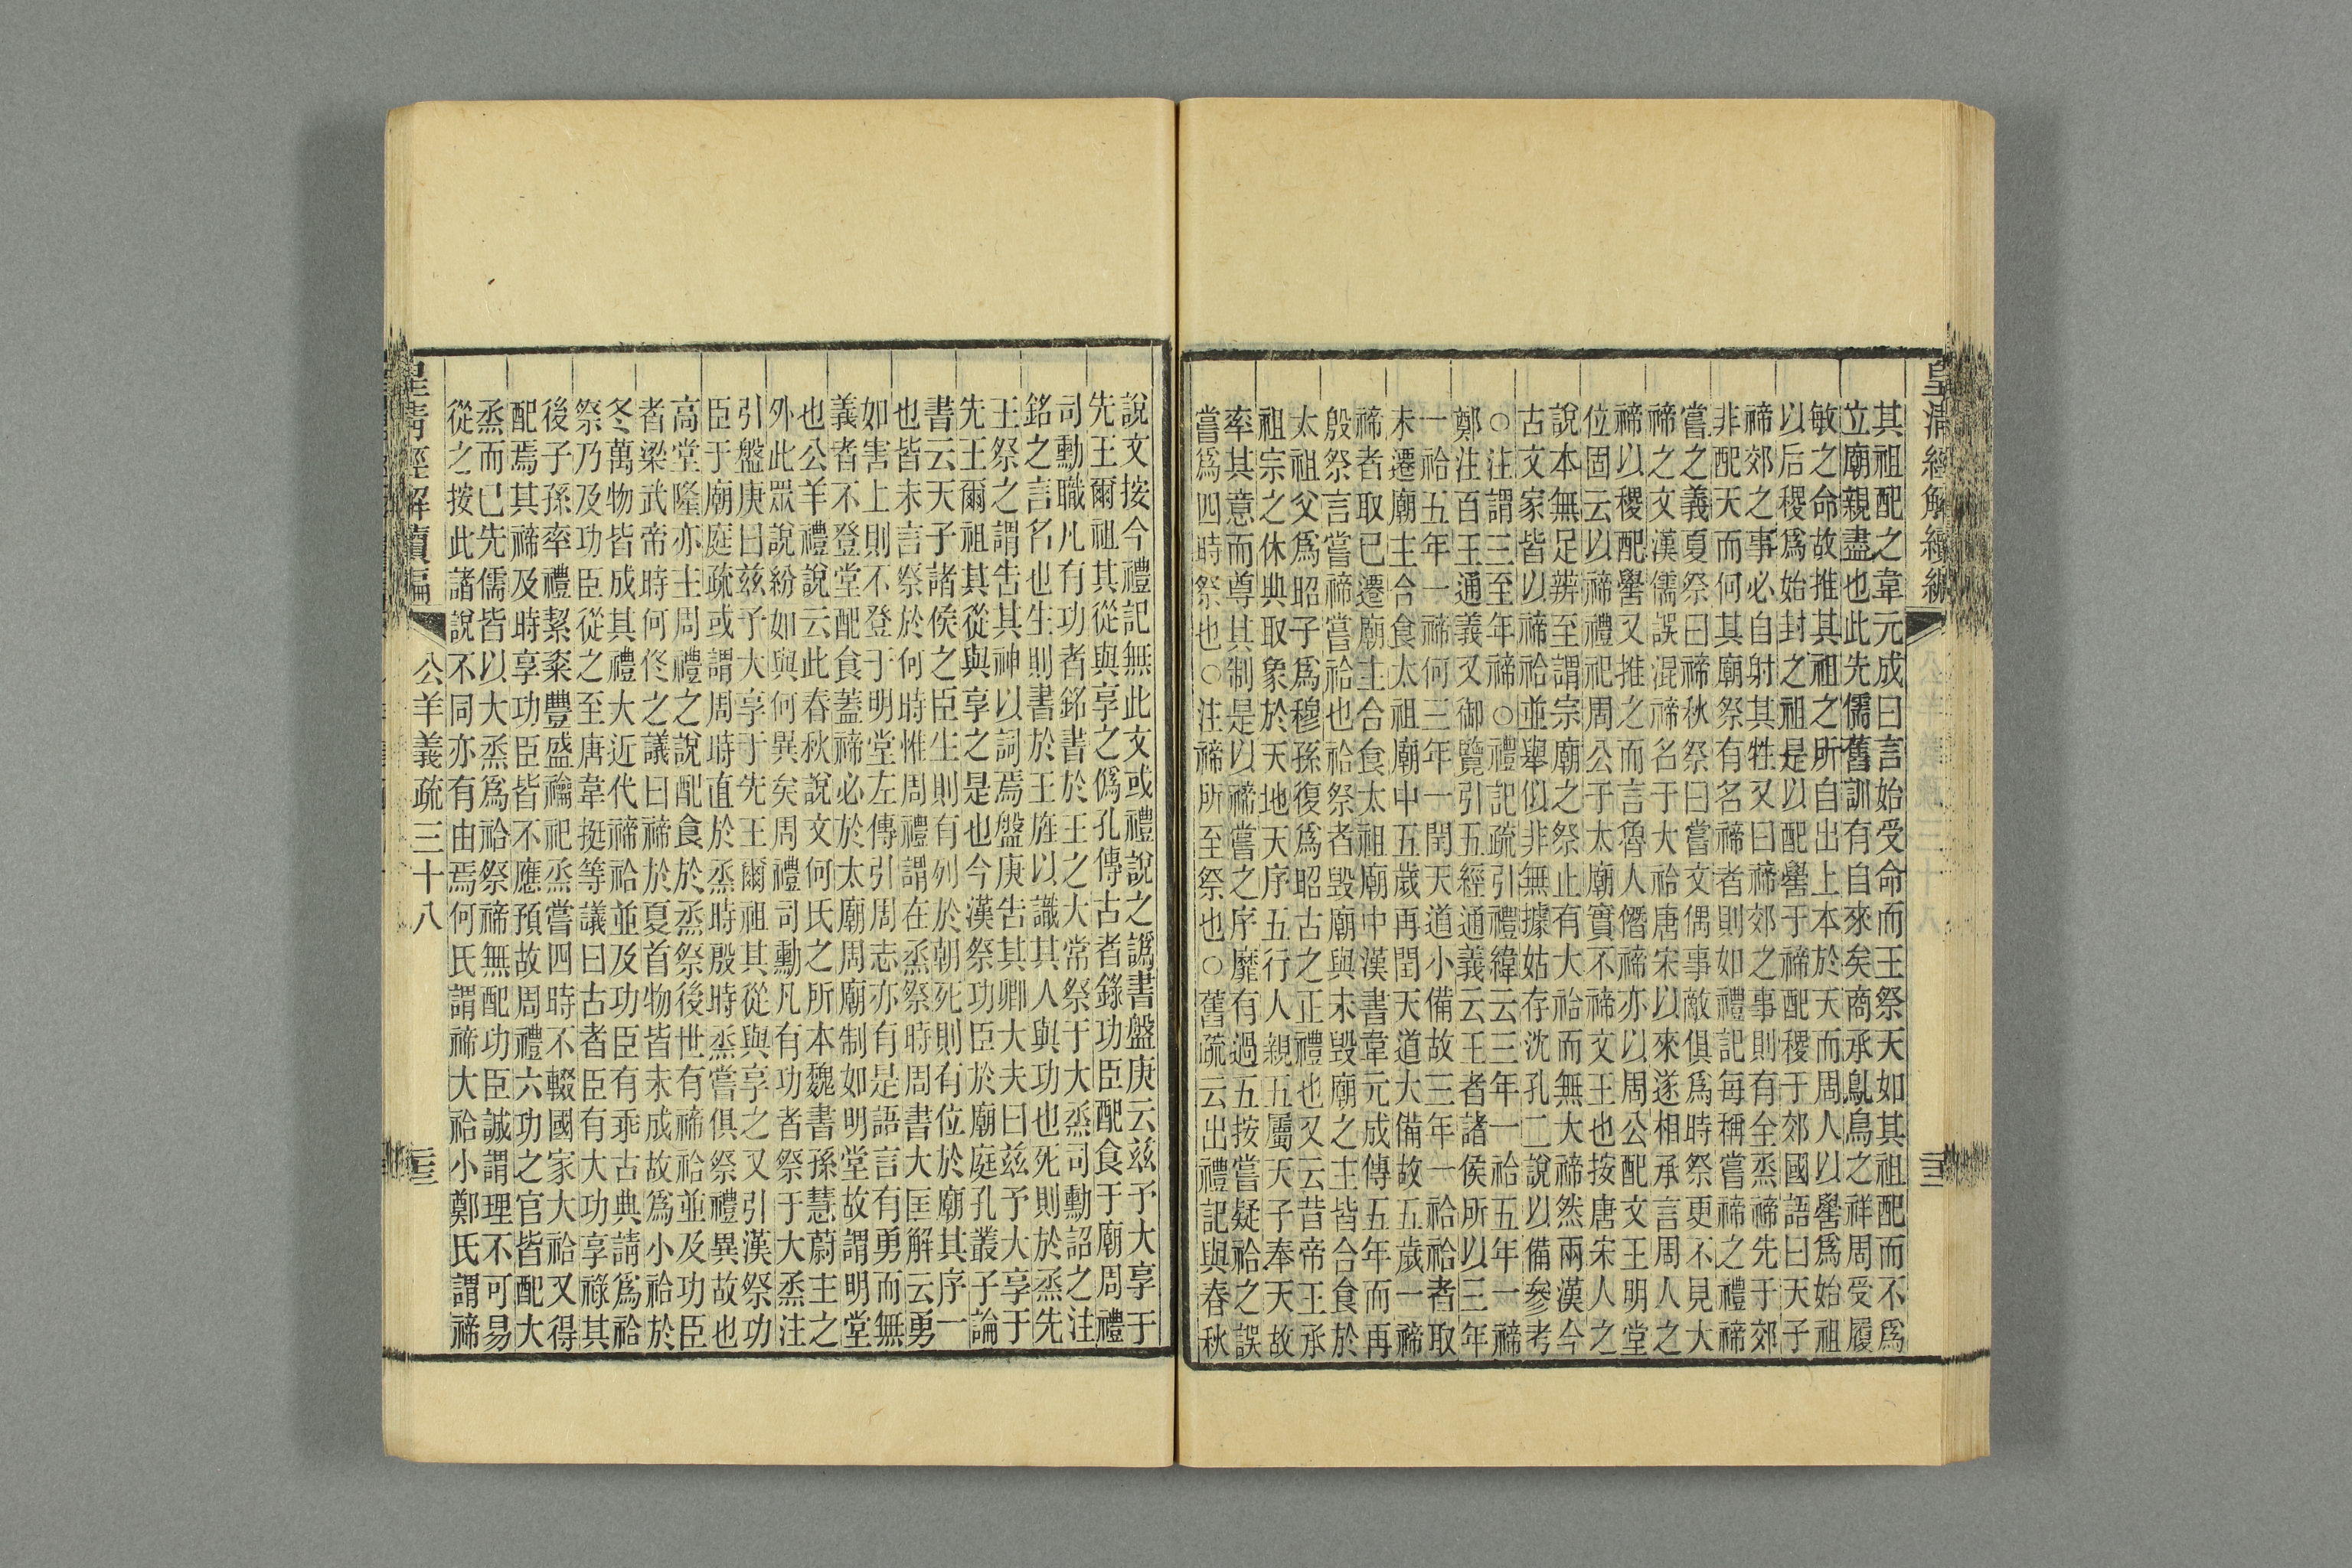 皇清經解續編
其祖配之韋元成曰言始受命而王祭天如其祖配而不爲
立廟親盡也此先儒舊訓有自來矣商承鳥之祥周受履
敏之命故推其祖之所自出上本於天而周人以嚳爲始祖
以后稷爲始封之祖是以配嚳于禘配稷于郊國語曰天子
禘郊之事必自射其牲又曰禘郊之事則有全烝禘先于郊
非配天而何其廟祭有名禘者則如禮記每稱嘗禘之禮禘
嘗之義夏祭曰禘秋祭曰嘗文偶事敵俱爲時祭更不見大
禘之文漢儒誤混禘名于大祫唐宋以來遂相承言周人之
禘以稷配嚳又推之而言魯人僭禘亦以周公配文王明堂
位固云以禘禮祀周公于太廟實不禘文王也按唐宋人之
說本無足辨至謂宗廟之祭止有大祫而無大禘然兩漢今
古文家皆以禘祫並舉似非無據姑存沈孔二說以備參考
○注謂三至年禘○禮記疏引禮緯云三年一祫五年一禘
鄭注百王通義又御覽引五經通義云王者諸侯所以三年
一祫五年一禘何三年一閏天道小備故三年一祫祫者取
未遷廟主合食太祖廟中五歲再閏天道大備故五歲一禘
禘者取已遷廟主合食太祖廟中漢書韋元成傳五年而再
殷祭言嘗禘嘗祫也祫祭者毀廟與未毀廟之主皆合食於
太祖父爲昭子爲穆孫復爲昭古之正禮也又云昔帝王承
祖宗之休典取象於天地天序五行人親五屬天子奉天故
率其意而尊其制是以禘嘗之序靡有過五按嘗疑祫之誤
嘗爲四時祭也○注禘所至祭也○舊疏云出禮記與春秋
說文按今禮記無此文或禮說之譌書盤庚云兹予大享于
先王爾祖其從與享之僞孔傳古者錄功臣配食于廟周禮
司勳職凡有功者銘書於王之大常祭于大烝司勳詔之注
銘之言名也生則書於王旌以識其人與功也死則於烝先
王祭之謂告其神以詞焉盤庚告其卿大夫曰兹予大享于
先王爾祖其從與享之是也今漢祭功臣於廟庭孔叢子論
書云天子諸侯之臣生則有列於朝死則有位於廟其序一
也皆未言祭於何時惟周禮謂在烝祭時周書大匡解云勇
如害上則不登于明堂左傳引周志亦有是語言有勇而無
義者不登堂配食蓋禘必於太廟周廟制如明堂故謂明堂
也公羊禮說云此春秋說文何氏之所本魏書孫慧蔚主之
外此眾說紛如與何異矣周禮司勳凡有功者祭于大烝注
引盤庚曰兹予大享于先王爾祖其從與享之又引漢祭功
臣于廟庭疏或謂周時直於烝時殷時烝嘗俱祭禮異故也
高堂隆亦主周禮之說配食於烝祭後世有禘祫並及功臣
者梁武帝時何佟之議曰禘於夏首物皆未成故爲小祫於
冬萬物皆成其禮大近代禘祫並及功臣有乖古典請爲祫
祭乃及功臣從之至唐韋挺等議曰古者臣有大功享祿其
後子孫率禮絜粢豐盛禴祀烝嘗四時不輟國家大祫又得
配焉其禘及時享功臣皆不應預故周禮六功之官皆配大
烝而已先儒皆以大烝爲祫祭禘無配功臣誠謂理不可易
從之按此諸說不同亦有由焉何氏謂禘大祫小鄭氏謂禘
皇清經解續編 公羊義疏三十八